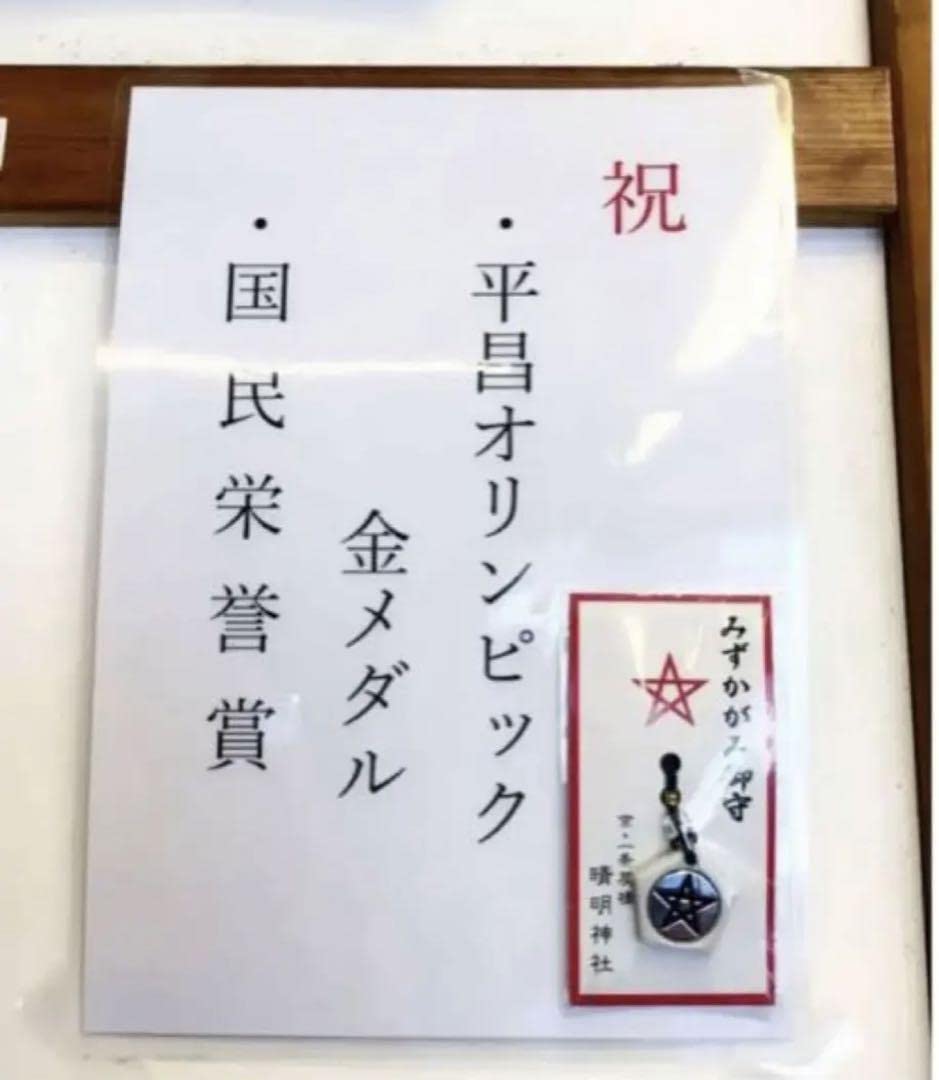 祝
・平昌オリンピック
金メダル
・国民栄誉賞
みずかがみ御守
京・一条戻橋
晴明神社